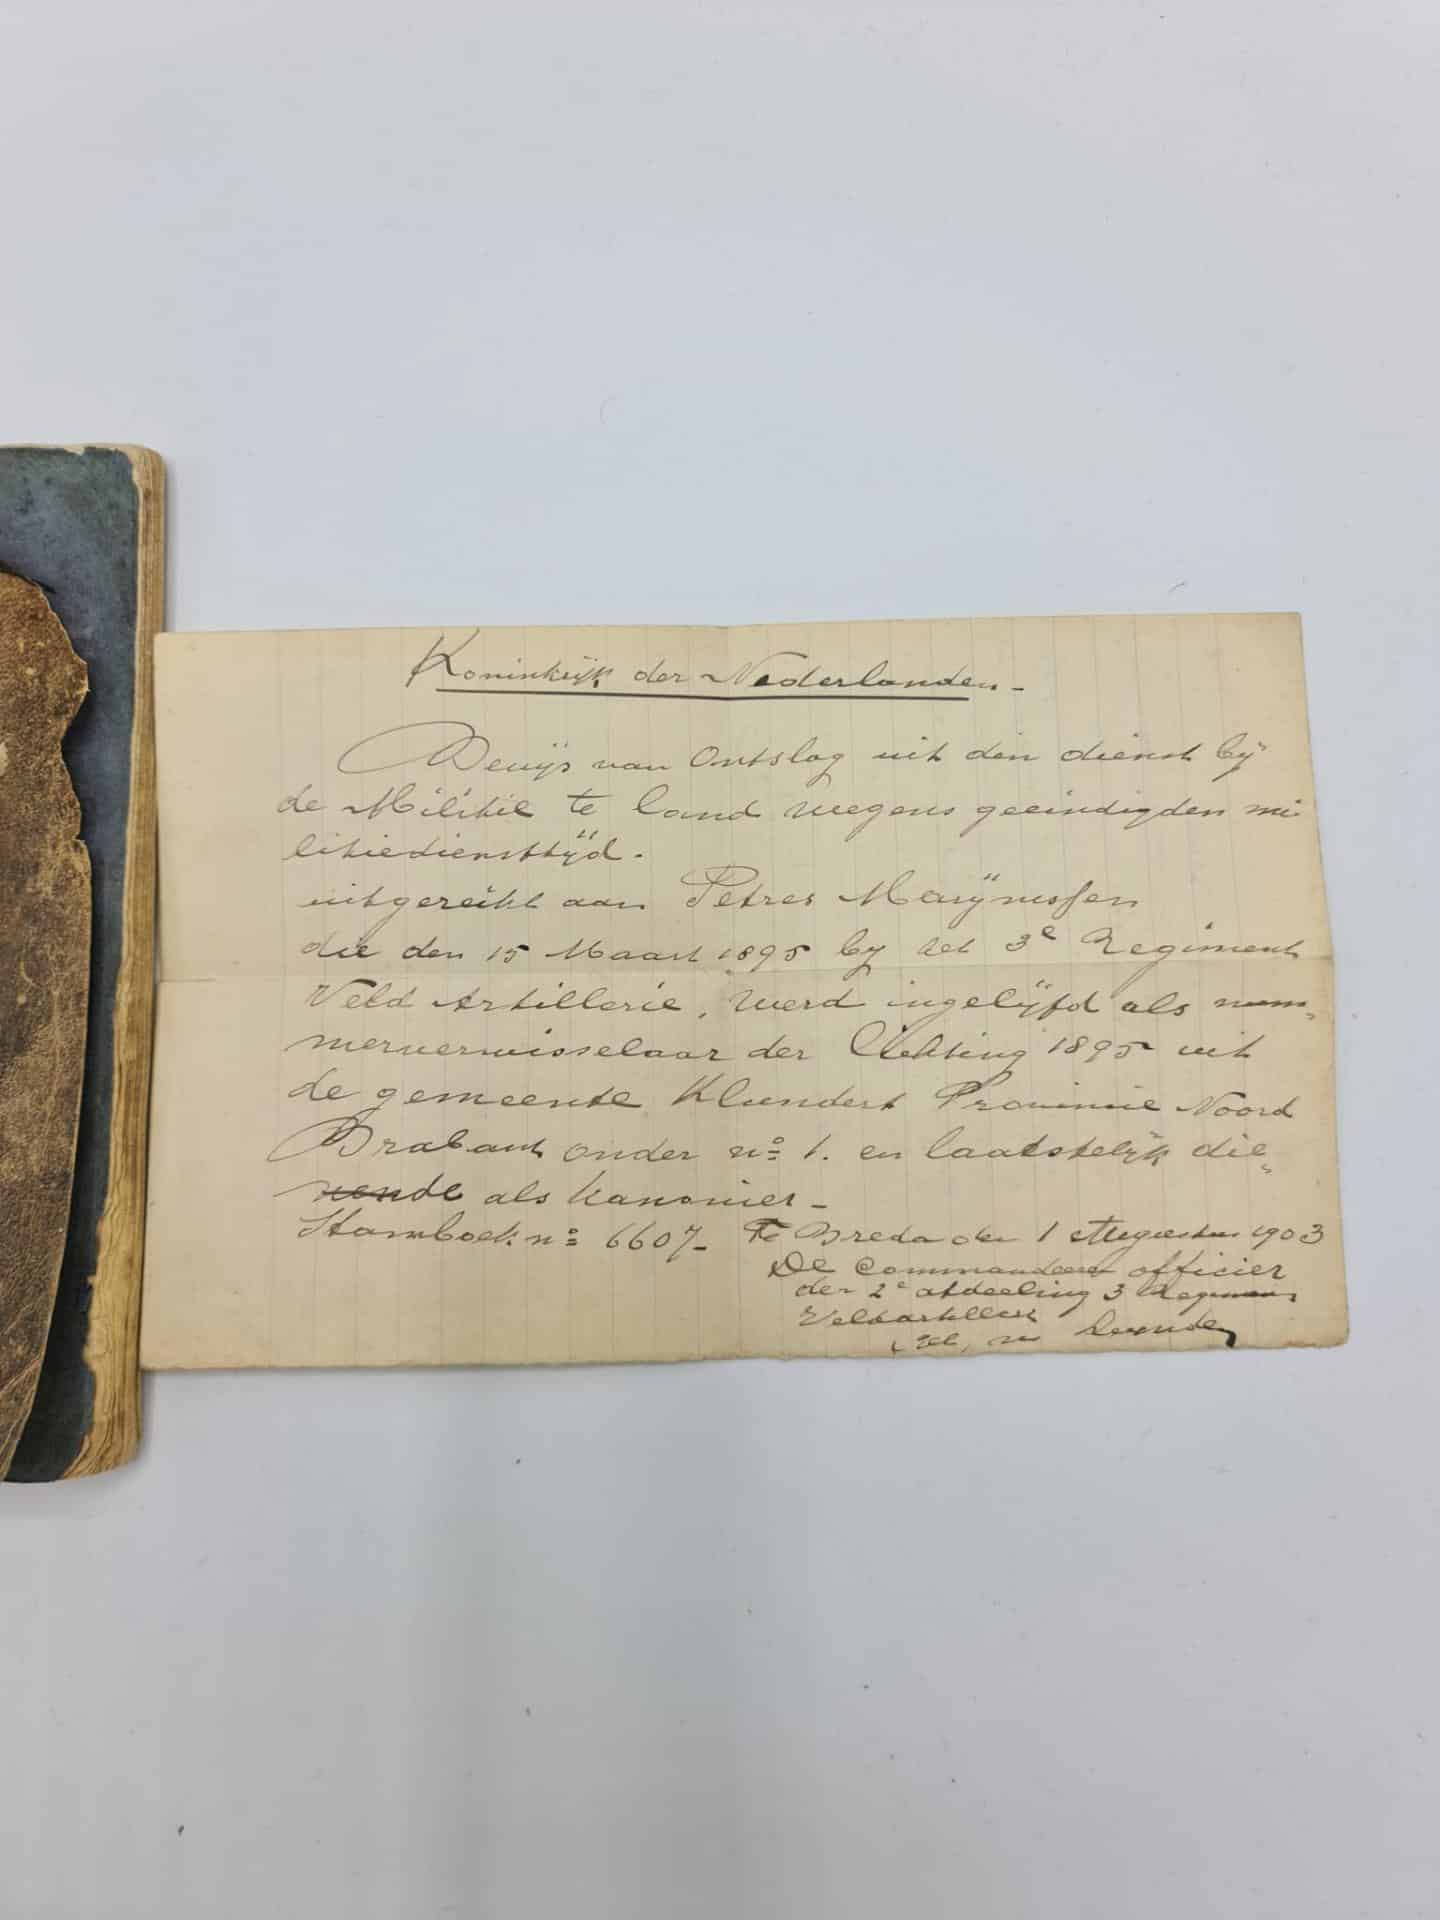 Koninkrijk der Nederlanden.-
Bewijs van Ontslag uit den dienst bij
de Militie te land wegens geeindigden mi-
litiediensttijd.
uitgereikt aan Petrus Marijnissen
die den 15 Maart 1895 bij het 3e Regiment
Veld Artillerie, werd ingelijfd als num-
merverwisselaar der lichting 1895 uit
de gemeente Klundert Provincie Noord
Brabant onder no 1. en laatstelijk die-
nende als kanonier -
Stamboek no 6607 - Te Breda den 1 Augustus 1903
De Commandeer officier
der 2e afdeeling 3 Regiment
Veldartillerie